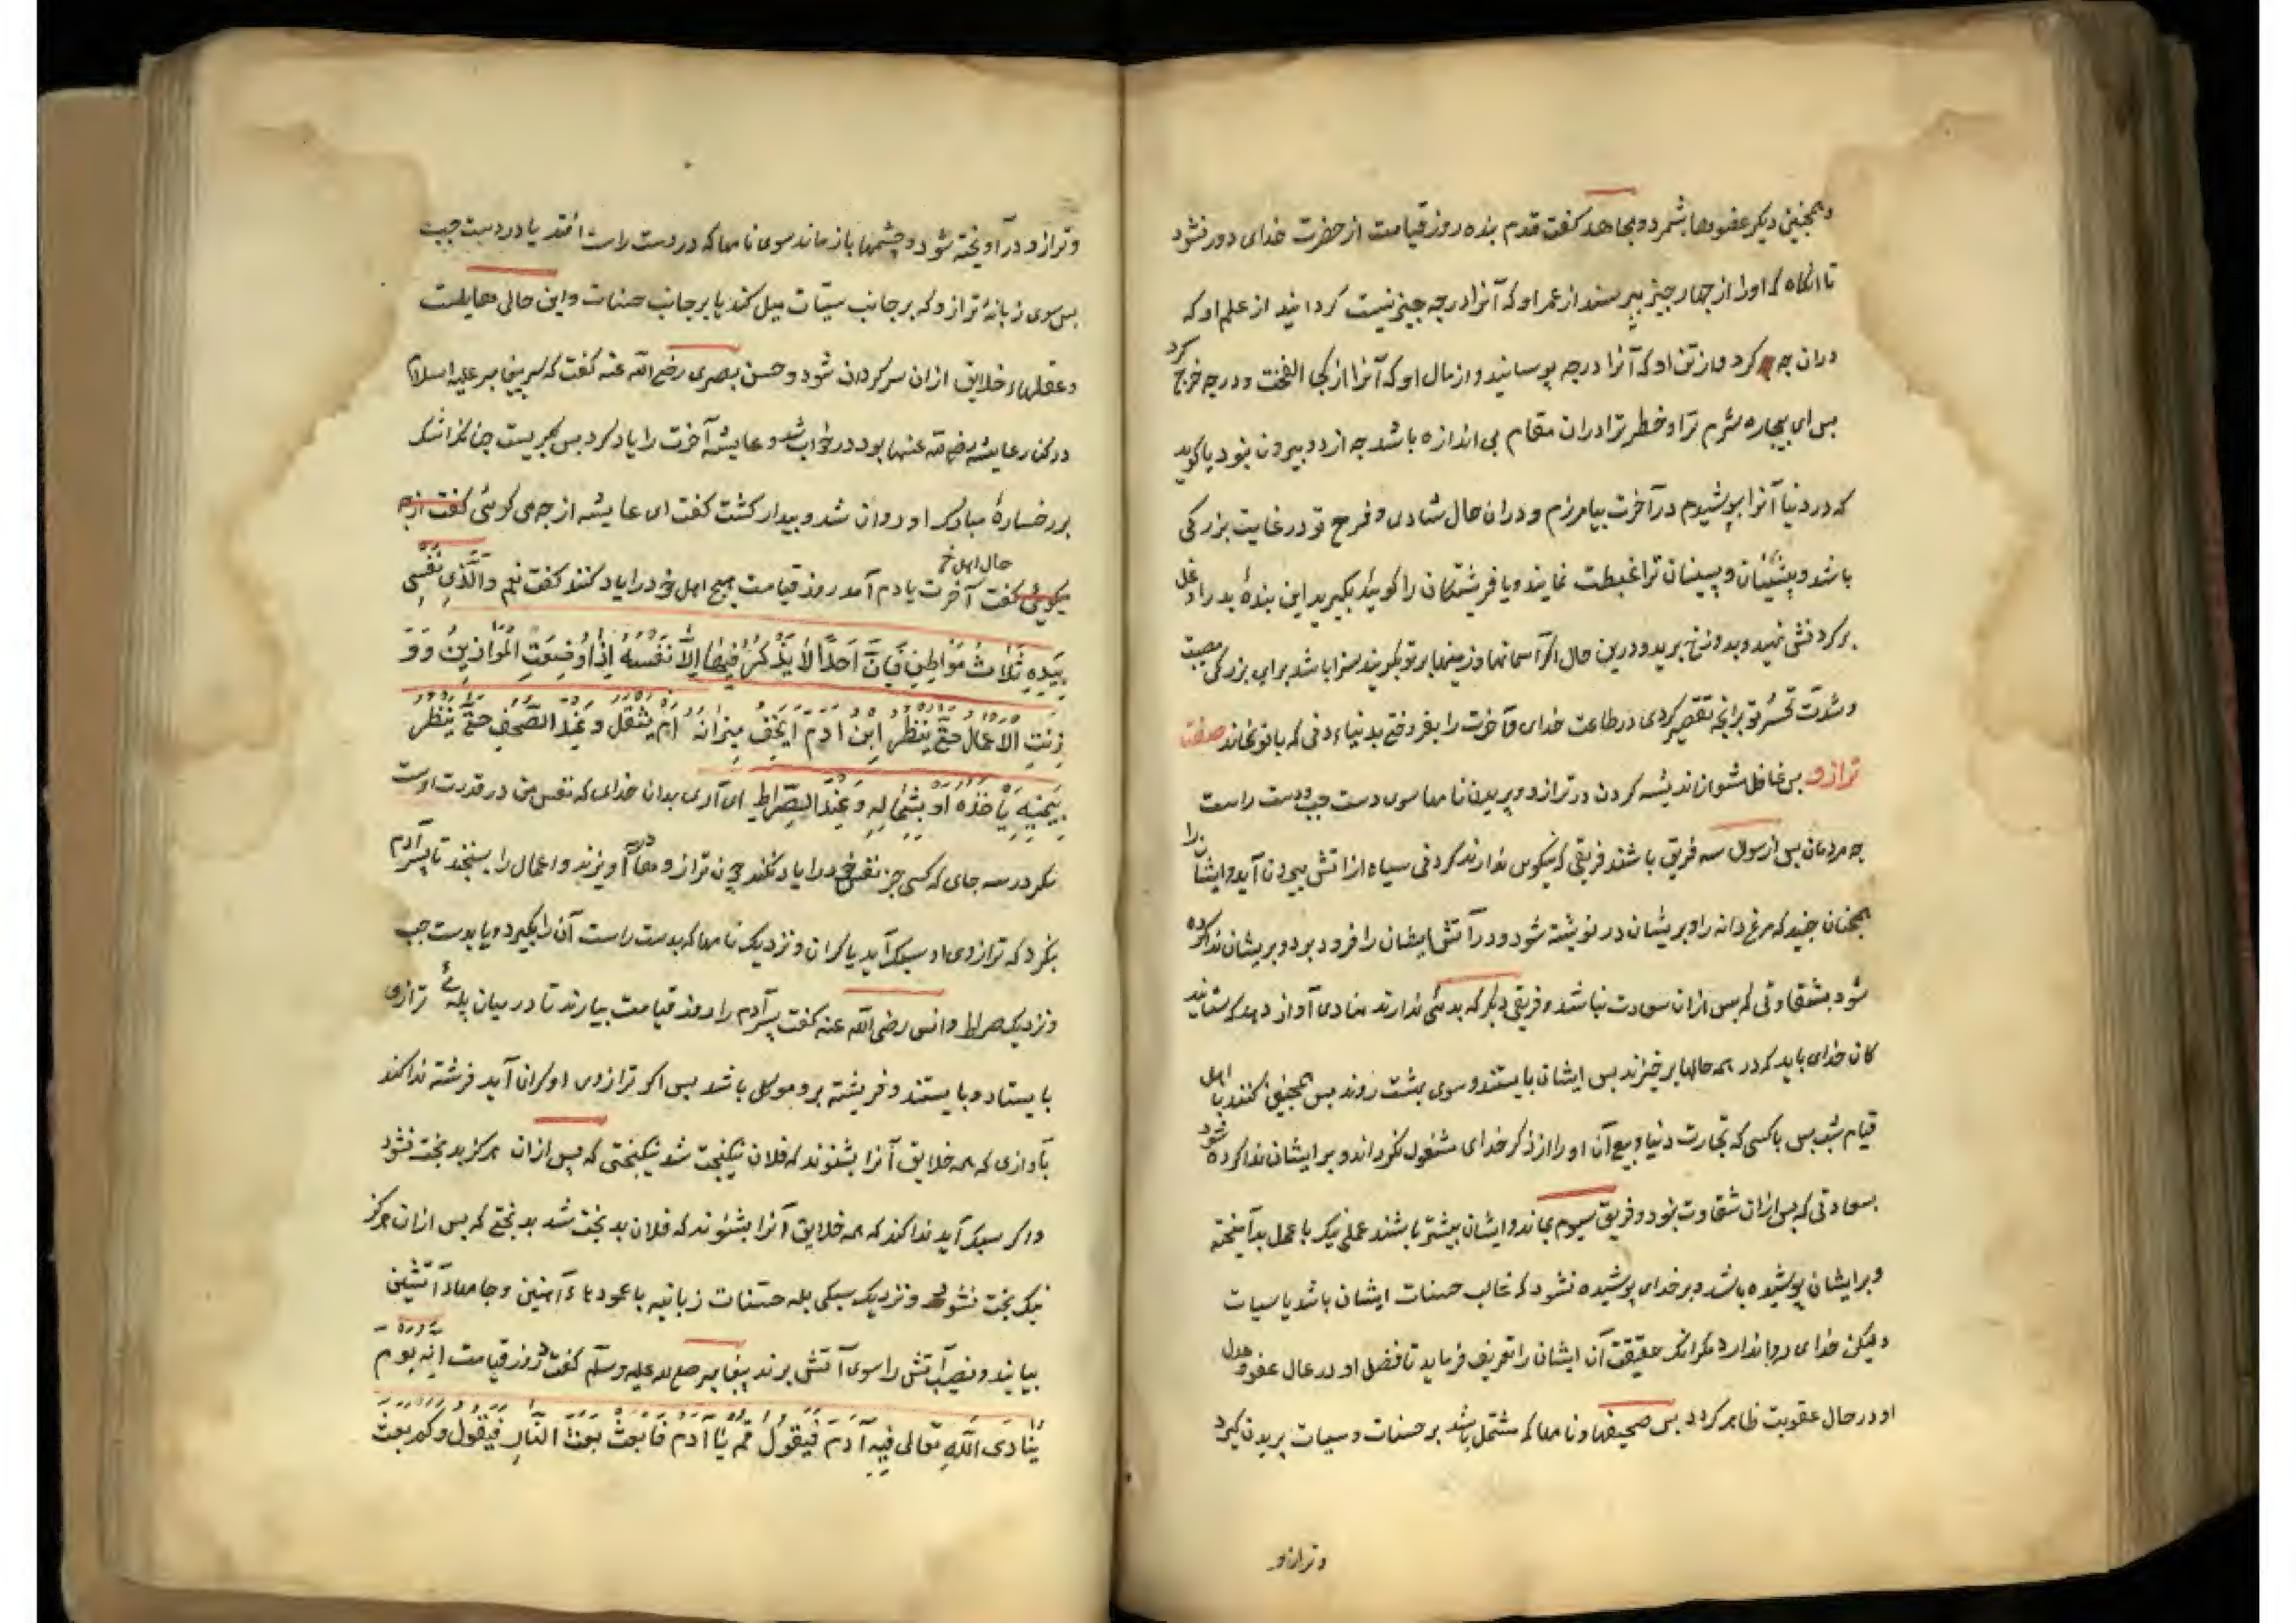 و همچنین دیکر عضوها بشمرد و مجاهد کفت قدم بنده روز قیامت از حضرت خدای دور نشود
تا انکاه که او را از چهار چیز بپرسند از عمر او که آنرا در چه چیز نیست کردانید از علم او که
دران چه کرد و از تن او که آنرا در چه پوسانید و از مال او که آنرا از کجا الفخت و در چه خرج کرد
بس ای بیچاره شرم ترا و خطر ترا دران مقام بی اندازه باشد چه از دو بیرون نبود یا کوید
که در دنیا آنرا بپوشیدم در آخرت بیامرزم و دران حال شادی و فرح تو در غایت بزرکی
باشد و پیشینان و پسینان ترا غبطت نمایند و یا فریشتکان را کوید بکیرید این بندهٔ بد را و غل
بر کردنش نهید و بدوزخ برید و درین حال اکر آسمانها و زمینها بر تو بکریند سزا باشد برای بزرکی مصیبت
و شدت تحسر تو برانچه تقصیر کردی در طاعت خدای و آخرت را بفروختی بدنیاء دنی که با تو نماند صفت
ترازو بس غافل مشو از اندیشه کردن در ترازو و پریدن نامها سوی دست چپ و دست راست
چه مردمان بس از سوال سه فریق باشند فریقی که نیکویی ندارند کردنی سیاه از آتش بیرون آید و ایشان را
همچنان چیند که مرغ دانه را و بریشان در نوشته شود و در آتش ایشان را فرود برد و بریشان ندا کرده
شود بشقاوتی که بس ازان سعادت نباشد و فریقی دیکر که بدیی ندارند منادی آواز دهد که ستایند
کان خدای باید که در همه حالها برخیزند بس ایشان بایستند و سوی بهشت روند بس همچنین کنند با اهل
قیام شب بس با کسی که تجارت دنیا و بیع آن او را از ذکر خدای مشغول نکرداند و بر ایشان ندا کرده شود
بسعادتی که بس ازان شقاوت نبود و فریق سیوم بماند و ایشان بیشتر باشند عملی نیک با عمل بد آمیخته
و بر ایشان پوشیده باشد و بر خدای پوشیده نشود که غالب حسنات ایشان باشد یا سیات
و لیکن خدای روا ندارد مکر انکه حقیقت آن ایشان را تعریف فرماید تا فضل او در حال عفو و عدل
او در حال عقوبت ظاهر کردد بس صحیفها و نامها که مشتمل باشد بر حسنات و سیات پریدن کیرد
و ترازو
و ترازو در آویخته شود و چشمها باز ماند سوی نامها که در دست راست افتد یا در دست چپ
بس سوی زبانهٔ ترازو که بر جانب سیئات میل کند یا بر جانب حسنات و این حالی هایلست
و عقلهاء خلایق ازان سرکردان شود و حسن بصری رضی الله عنه کفت که سر پیغامبر علیه السلام
در کنار عایشه رضی الله عنها بود در خواب شد و عایشه آخرت را یاد کرد بس بکریست چنانکه اشک
بر رخسارهٔ مبارک او روان شد و بیدار کشت کفت ای عایشه از چه می کریی کفت از چه
میکوئی کفت آخرت یادم آمد روز قیامت هیچ اهل خود را یاد کنند کفت نعم وَالَّذِی نَفْسِی
حال اهل خ
بِیَدِهِ ثَلَاثُ مَوَاطِنَ فَاِنَّ اَحَدًا لَا یَذْکُرُ فِیهَا اِلَّا نَفْسَهُ اِذَا وُضِعَتِ الْمَوَازِینُ وَوُ
زِنَتِ الْاَعْمَالُ حَتَّی یَنْظُرَ ابْنُ اٰدَمَ اَیَخِفُّ مِیزَانُهُ اَمْ یَثْقُلُ وَعِنْدَ الصُّحُفِ حَتَّی یَنْظُرَ
بِیَمِینِهِ یَأْخُذُهُ اَوْ بِشِمَالِهِ وَعِنْدَ الصِّرَاطِ ای آری بدان خدای که نفس من در قدرت اوست
مکر در سه جای که کسی جز نفس خود را یاد نکند چون ترازوها در آویزند و اعمال را بسنجند تا پسر آدم
بنکرد که ترازوی او سبک آید یا کران و نزدیک نامها که بدست راست آن را بکیرد و یا بدست چپ
و نزدیک صراط و انس رضی الله عنه کفت پسر آدم را روز قیامت بیارند تا در میان پلهٔ ترازوی
بایستاد و بایستند و فریشته برو موکل باشد بس اکر ترازوی او کران آید فرشته ندا کند
بآوازی که همه خلایق آنرا بشنوند که فلان نیکبخت شد نیکبختی که پس ازان هرکز بدبخت نشود
و اکر سبک آید ندا کند که همه خلایق آنرا بشنوند که فلان بدبخت شد بدبختی که بس ازان هرکز
نیک بخت نشود و نزدیک سبکی پله حسنات زبانیه با عمودهاء آهنین و جامهاء آتشین
بیایند و نصیب آتش را سوی آتش برند پیغامبر صلی الله علیه وسلم کفت در روز قیامت اِنَّهُ یَوْمٌ
یُنَادِی اللّٰهُ تَعَالی فِیهِ اٰدَمَ فَیَقُولُ قُمْ یَا اٰدَمُ فَابْعَثْ بَعْثَ النَّارِ فَیَقُولُ وَکَمْ بَعْثُ